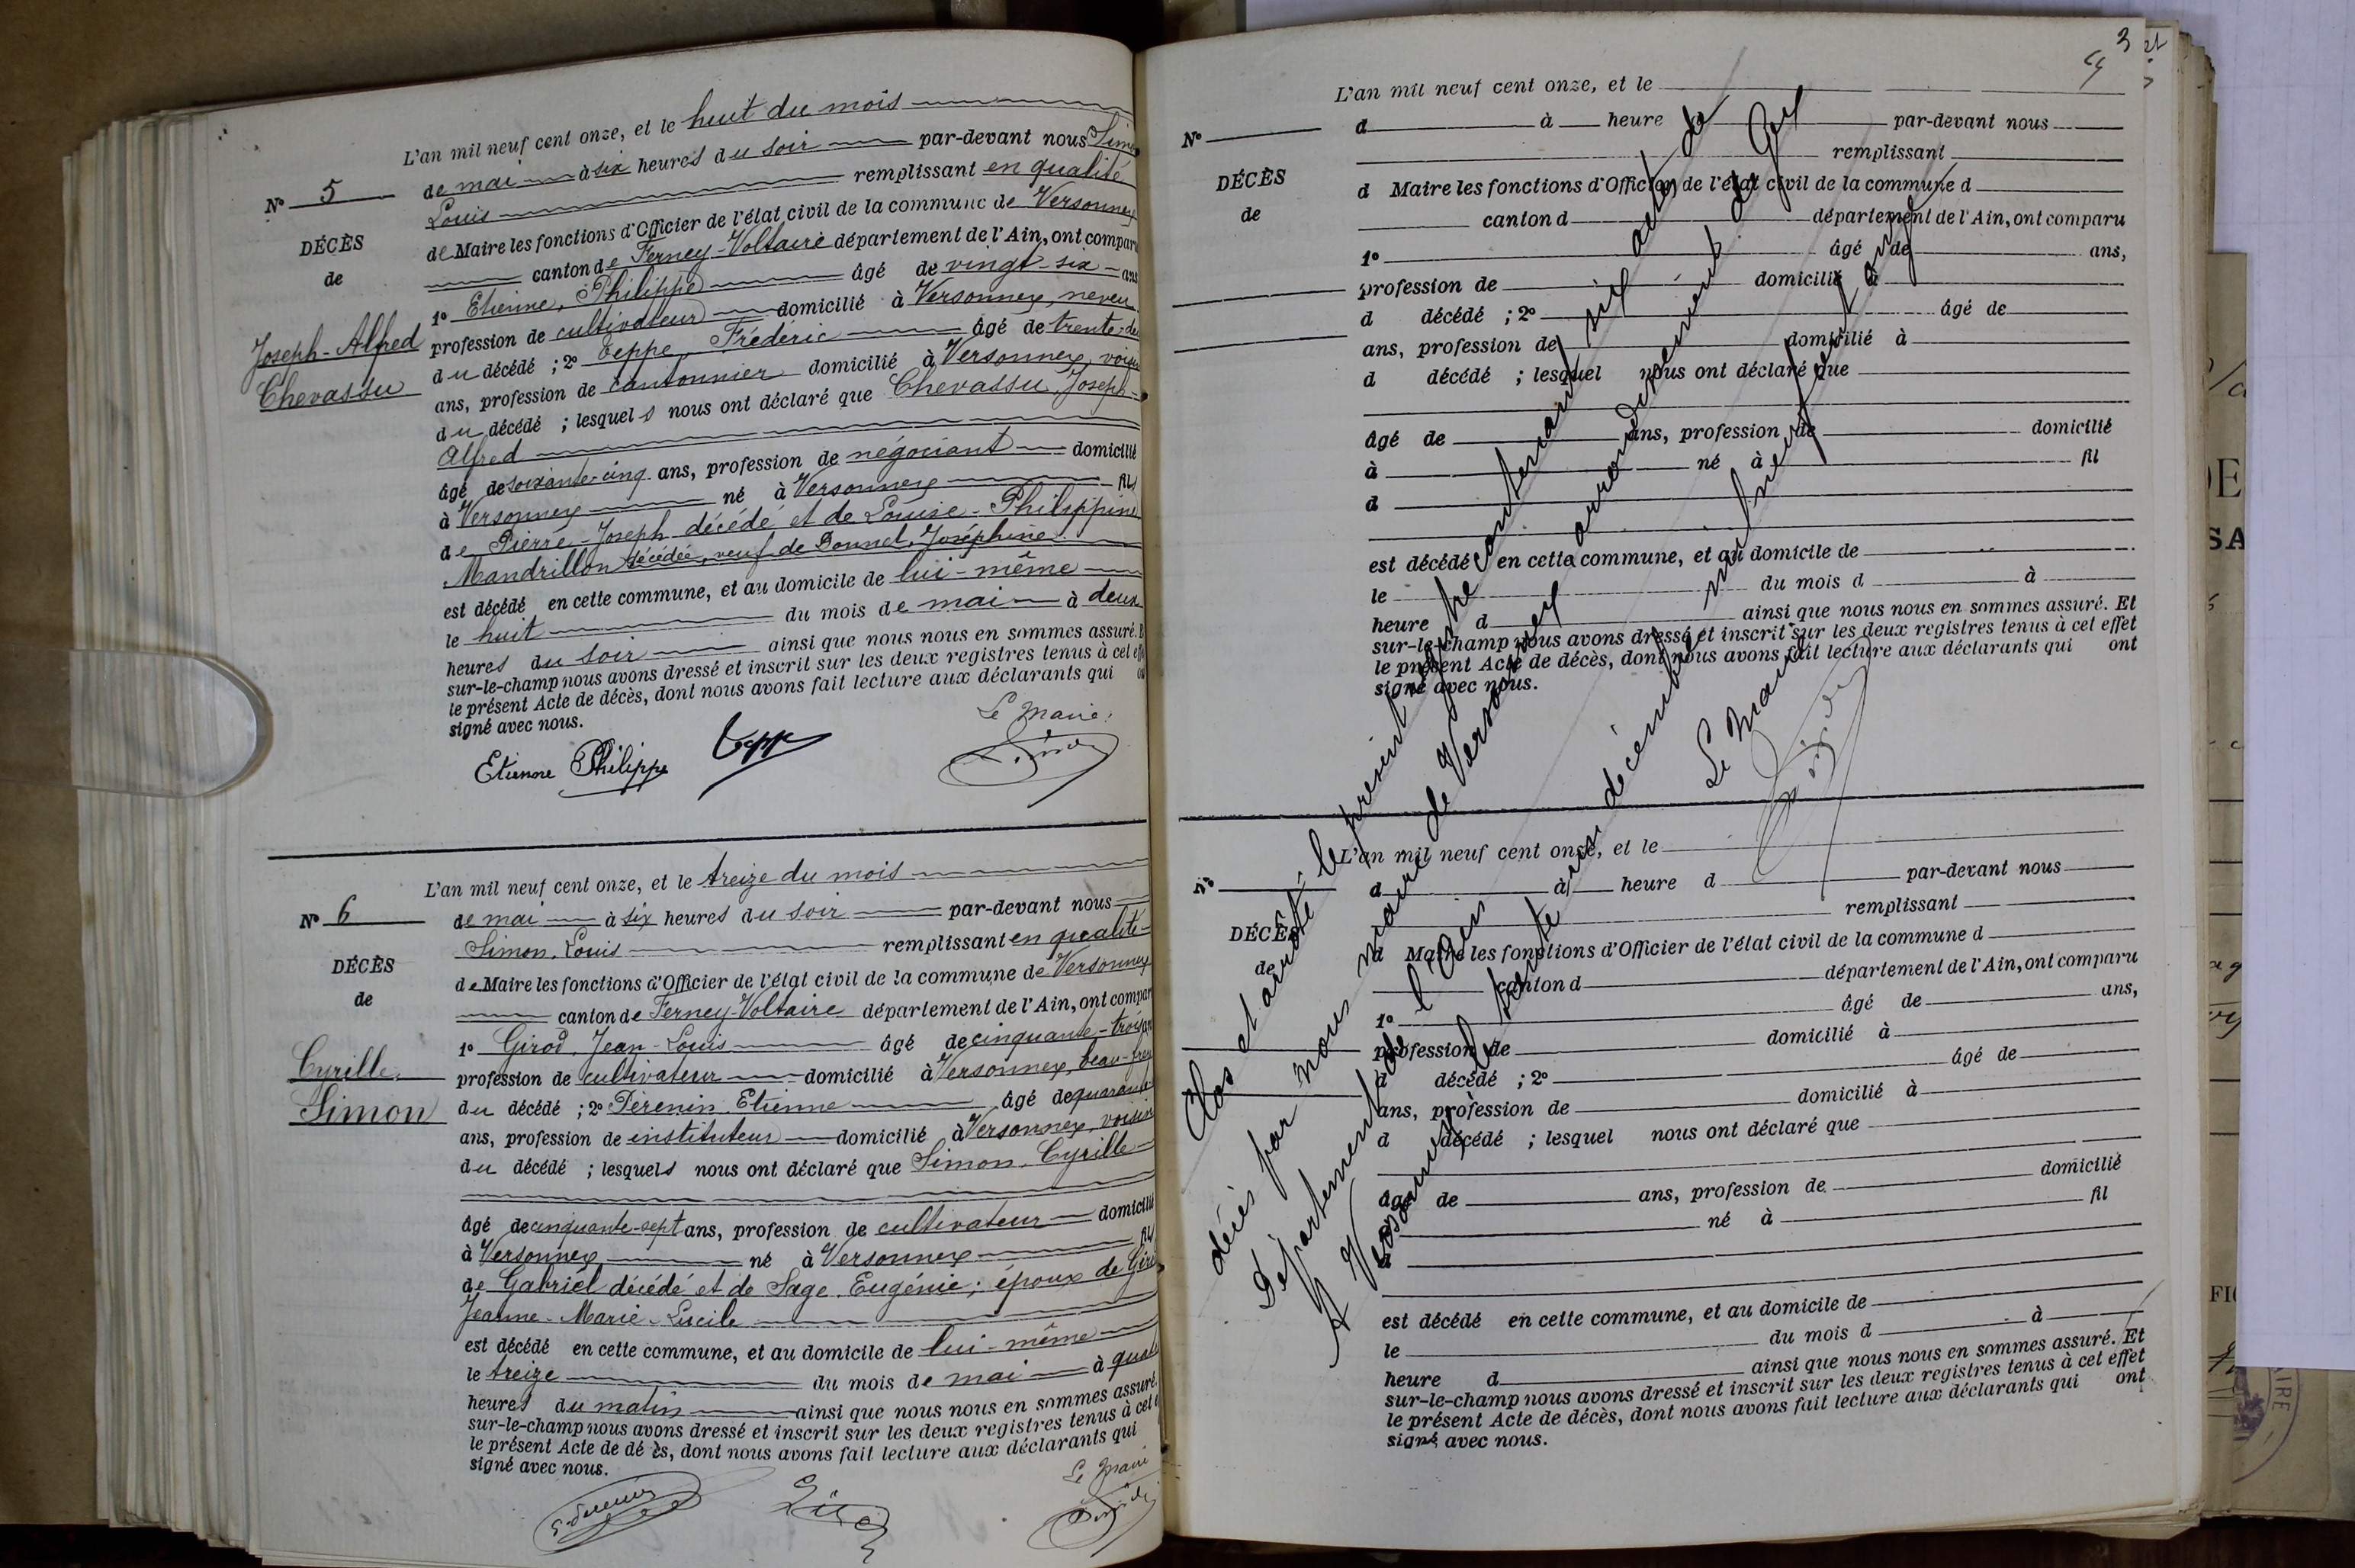 L'an mil neuf cent onze, et le huit du mois
N° 5 de mai à six heures du soir par-devant nous Simon
Louis remplissant en qualité
DÉCÈS de Maire les fonctions d'Officier de l'état civil de la commune de Versonnex
de canton de Ferney-Voltaire département de l'Ain, ont comparu
1° Etienne, Philippe âgé de vingt-six ans
profession de cultivateur domicilié à Versonnex, neveu
Joseph-Alfred du décédé ; 2° Ceppe, Frédéric âgé de trente-de
Chevassu ans, profession de cantonnier domicilié à Versonnex, voisin
du décédé ; lesquels nous ont déclaré que Chevassu, Joseph-
Alfred
âgé de soixante-cinq ans, profession de négociant domicilié
à Versonnex né à Versonnex fils
de Pierre-Joseph décédé et de Louise-Philippine
Mandrillon décédée, veuf de Bonnet, Joséphine
est décédé en cette commune, et au domicile de lui-même
le huit du mois de mai à deux
heures du soir ainsi que nous nous en sommes assuré. E
sur-le-champ nous avons dressé et inscrit sur les deux registres tenus à cet effe
le présent Acte de décès, dont nous avons fait lecture aux déclarants qui o
signé avec nous.
Le Maire,
Etienne Philippe Ceppe
L'an mil neuf cent onze, et le treize du mois
N° 6 de mai à six heures du soir par-devant nous
Simon, Louis remplissant en qualité
DÉCÈS de Maire les fonctions d'Officier de l'état civil de la commune de Versonnex
de canton de Ferney-Voltaire département de l'Ain, ont compar
1° Girod, Jean-Louis âgé de cinquante-trois an
Cyrille profession de cultivateur domicilié à Versonnex, beau-frère
Simon du décédé ; 2° Perenin, Etienne âgé de quarante
ans, profession de instituteur domicilié à Versonnex, voisin
du décédé ; lesquels nous ont déclaré que Simon, Cyrille
âgé de cinquante-sept ans, profession de cultivateur domicilié
à Versonnex né à Versonnex fils
de Gabriel décédé et de Sage, Eugénie ; époux de Giro
Jeanne-Marie-Lucile
est décédé en cette commune, et au domicile de lui-même
le treize du mois de mai à quat
heures du matin ainsi que nous nous en sommes assuré.
sur-le-champ nous avons dressé et inscrit sur les deux registres tenus à cet e
le présent Acte de dé ès, dont nous avons fait lecture aux déclarants qui
signé avec nous.
Le Maire
3
L'an mil neuf cent onze, et le
N° d à heure par-devant nous
remplissant
DÉCÈS d Maire les fonctions d'Officier de l'état civil de la commune d
de canton d département de l'Ain, ont comparu
1° âgé de ans,
profession de domicilié à
d décédé ; 2° âgé de
ans, profession de domicilié à
d décédé ; lesquel nous ont déclaré que
âgé de ans, profession de domicilié
à né à fil
d
est décédé en cette commune, et au domicile de
le du mois d à
heure d ainsi que nous nous en sommes assuré. Et
sur-le-champ nous avons dressé et inscrit sur les deux registres tenus à cet effet
le présent Acte de décès, dont nous avons fait lecture aux déclarants qui ont
signé avec nous.
Clos et arrêté le présent registre contenant six actes de
décès par nous maire de Versonnex arrondissement de Gex
Département de l'Ain
A Versonnex le trente un décembre mil neuf cent onze
Le Maire
L'an mil neuf cent onze, et le
N° d à heure d par-devant nous
remplissant
DÉCÈS d Maire les fonctions d'Officier de l'état civil de la commune d
de canton d département de l'Ain, ont comparu
1° âgé de ans,
profession de domicilié à
d décédé ; 2° âgé de
ans, profession de domicilié à
d décédé ; lesquel nous ont déclaré que
âgé de ans, profession de domicilié
à né à fil
d
est décédé en cette commune, et au domicile de
le du mois d à
heure d ainsi que nous nous en sommes assuré. Et
sur-le-champ nous avons dressé et inscrit sur les deux registres tenus à cet effet
le présent Acte de décès, dont nous avons fait lecture aux déclarants qui ont
signé avec nous.